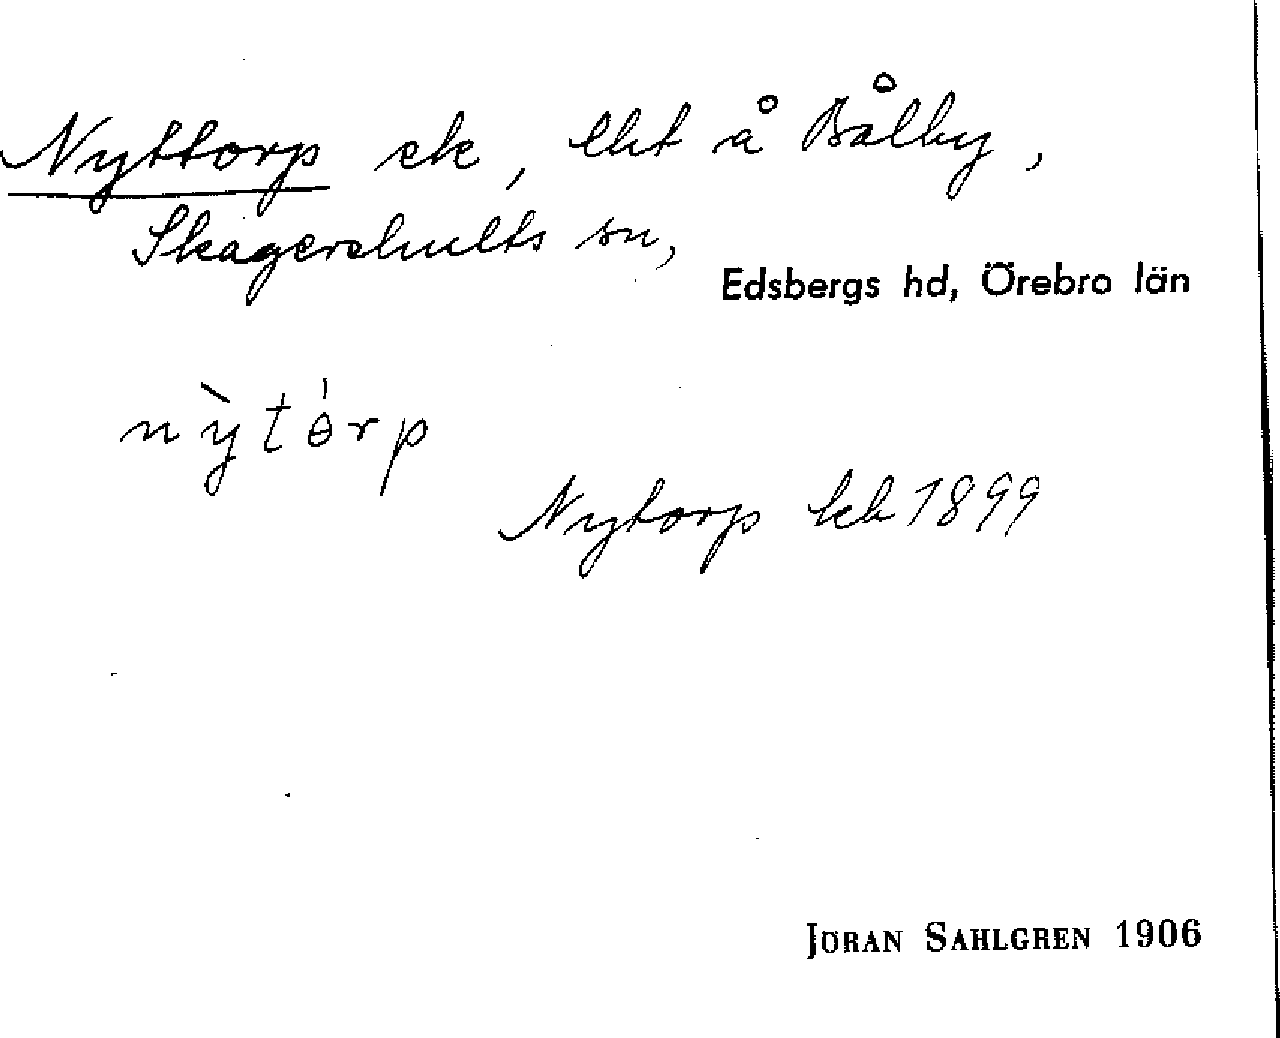 Nyttorp sk, lht å Bålby,
Skagershults sn,
Edsbergs hd, Örebro län
nỳtɵ́rp
Nytorp kb 1899
JÖRAN SAHLGREN 1906